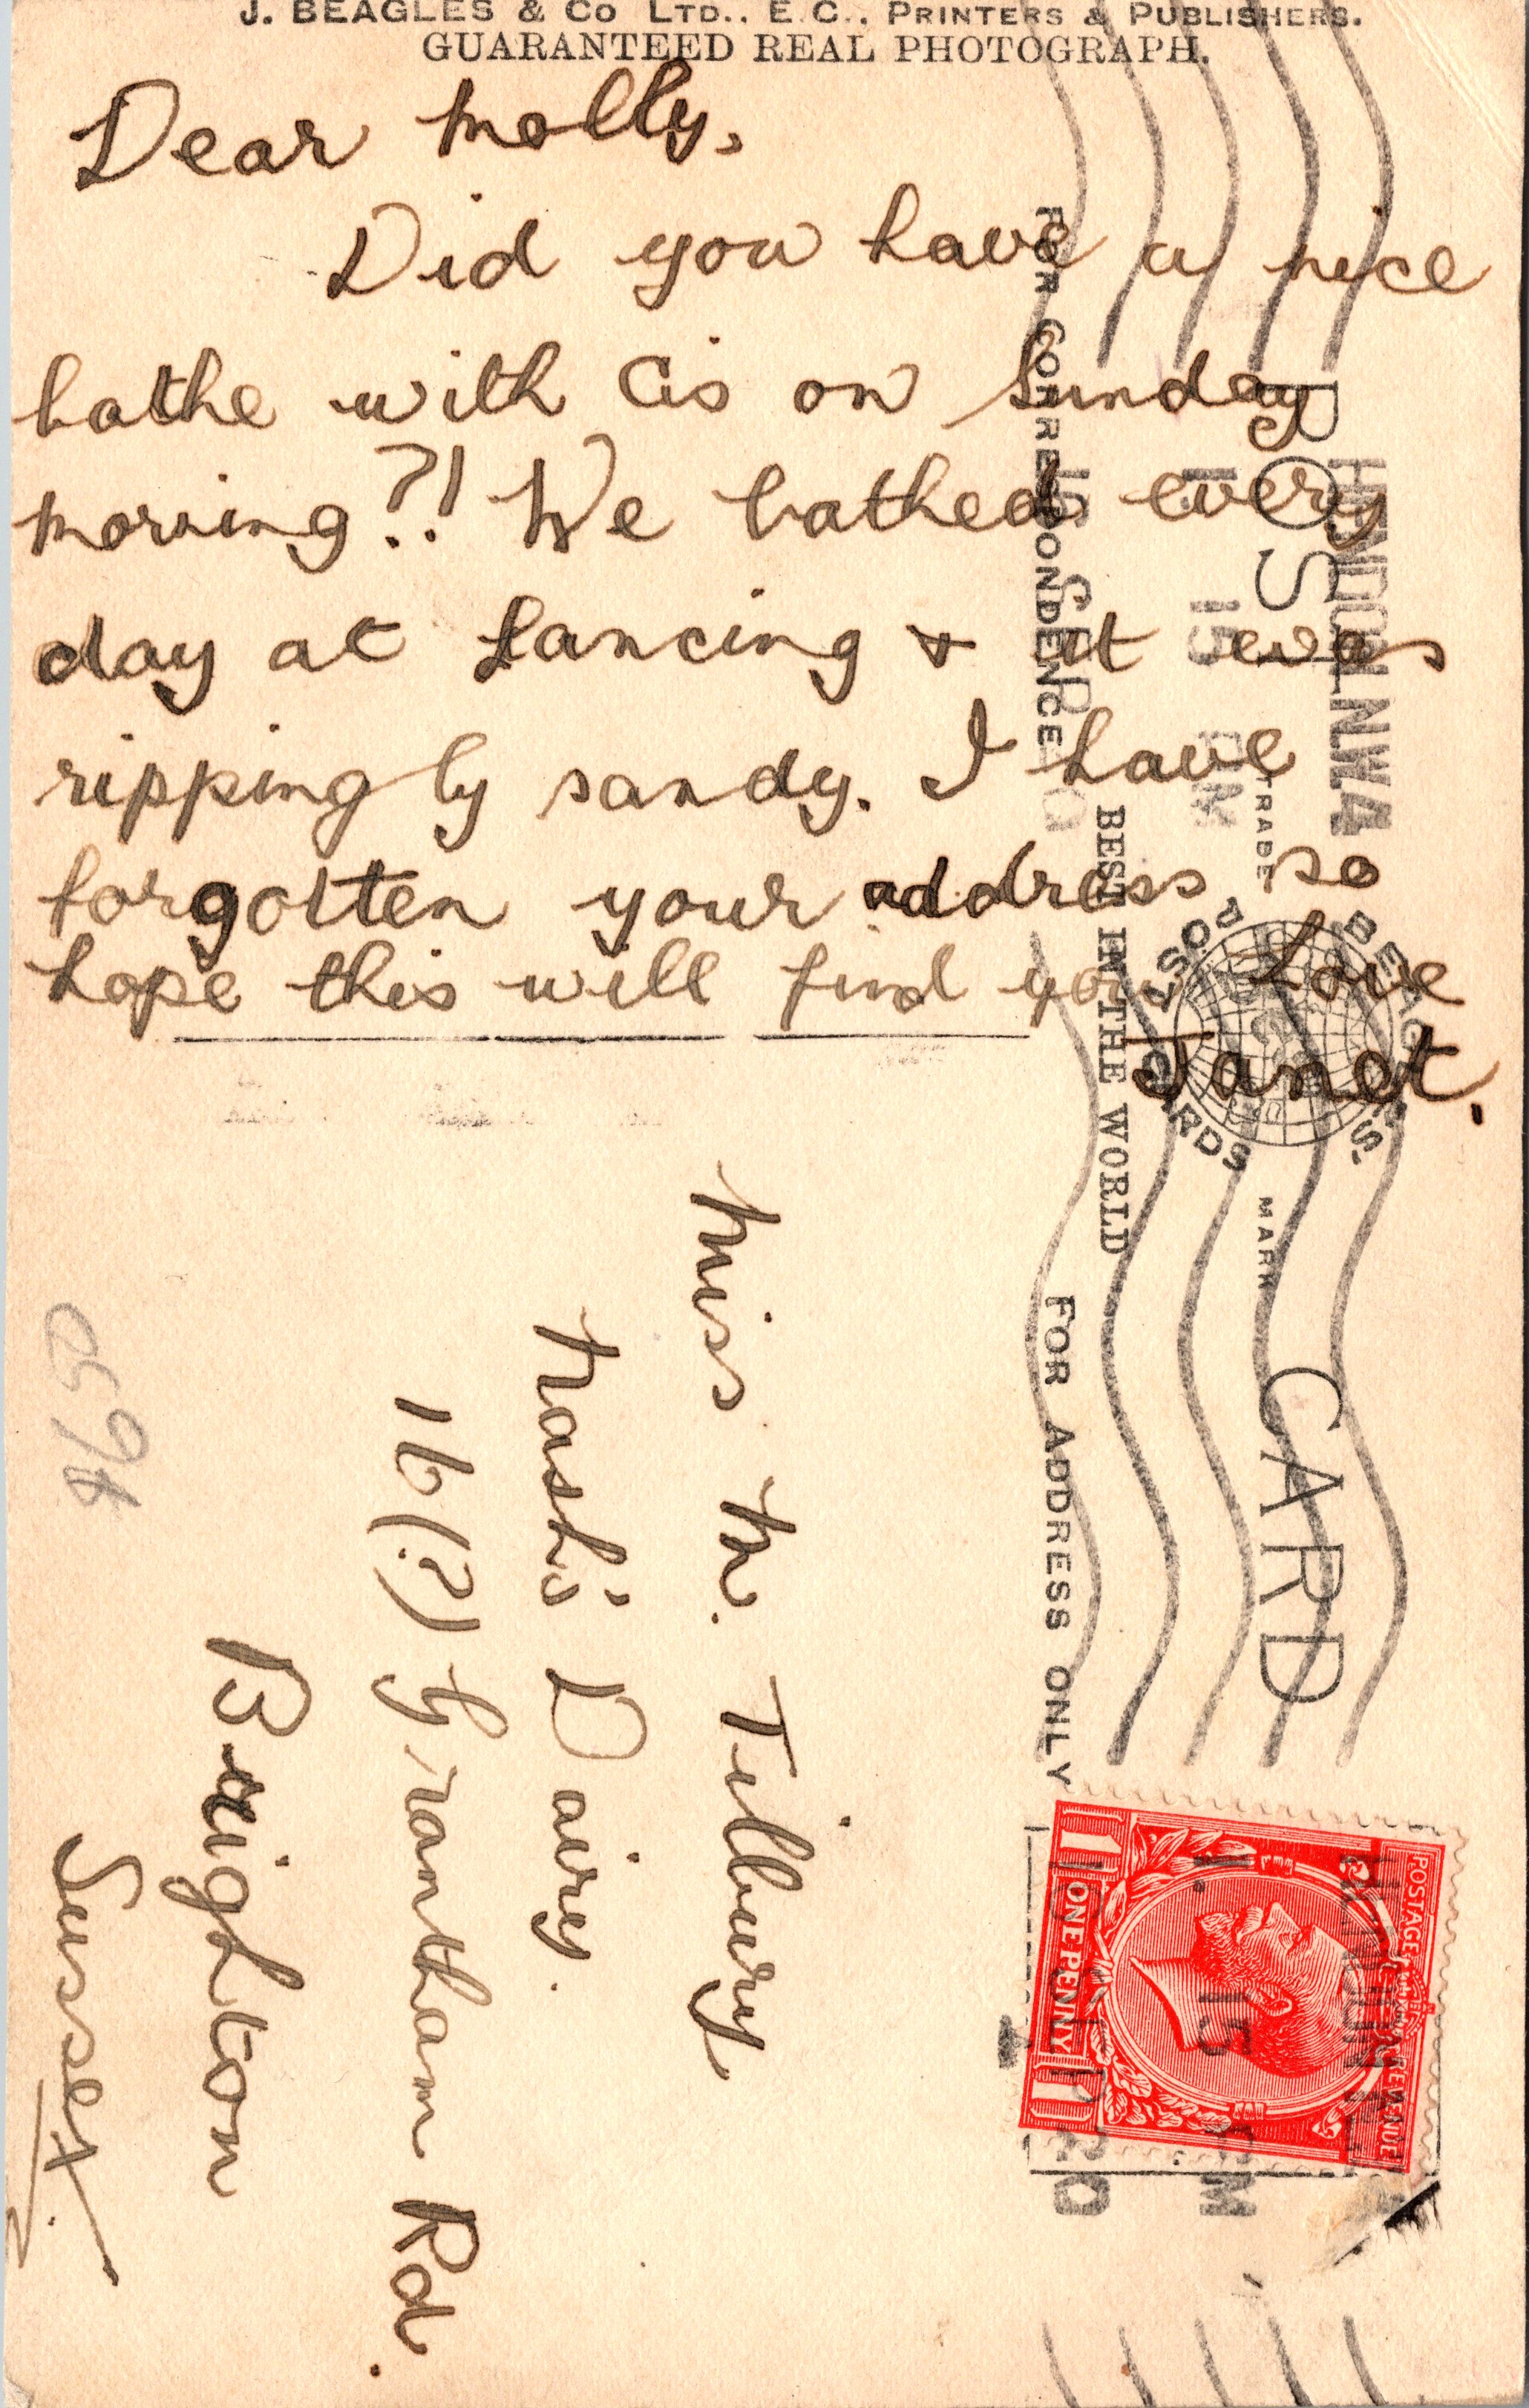 J. BEAGLES & Co LTD., E.C., PRINTERS & PUBLISHERS.
GUARANTEED REAL PHOTOGRAPH.
Dear Molly,
Did you have a nice
bathe with Cis on Sunday
morning?! We bathed every
day at Lancing & it was
rippingly sandy. I have
forgotten your address so
hope this will find you Love
Janet.
POST CARD
TRADE MARK
BEAGLES'
POST CARDS
BEST IN THE WORLD
FOR CORRESPONDENCE
FOR ADDRESS ONLY
HENDON.N.W.4
1. 15 PM
16 SEP
20
POSTAGE REVENUE
1 ONE PENNY 1
HENDON.N.W.4
1. 15 PM
16 SEP
20
Miss M. Tilbury
Nash's Dairy.
16(?) Grantham Rd.
Brighton
Sussex.